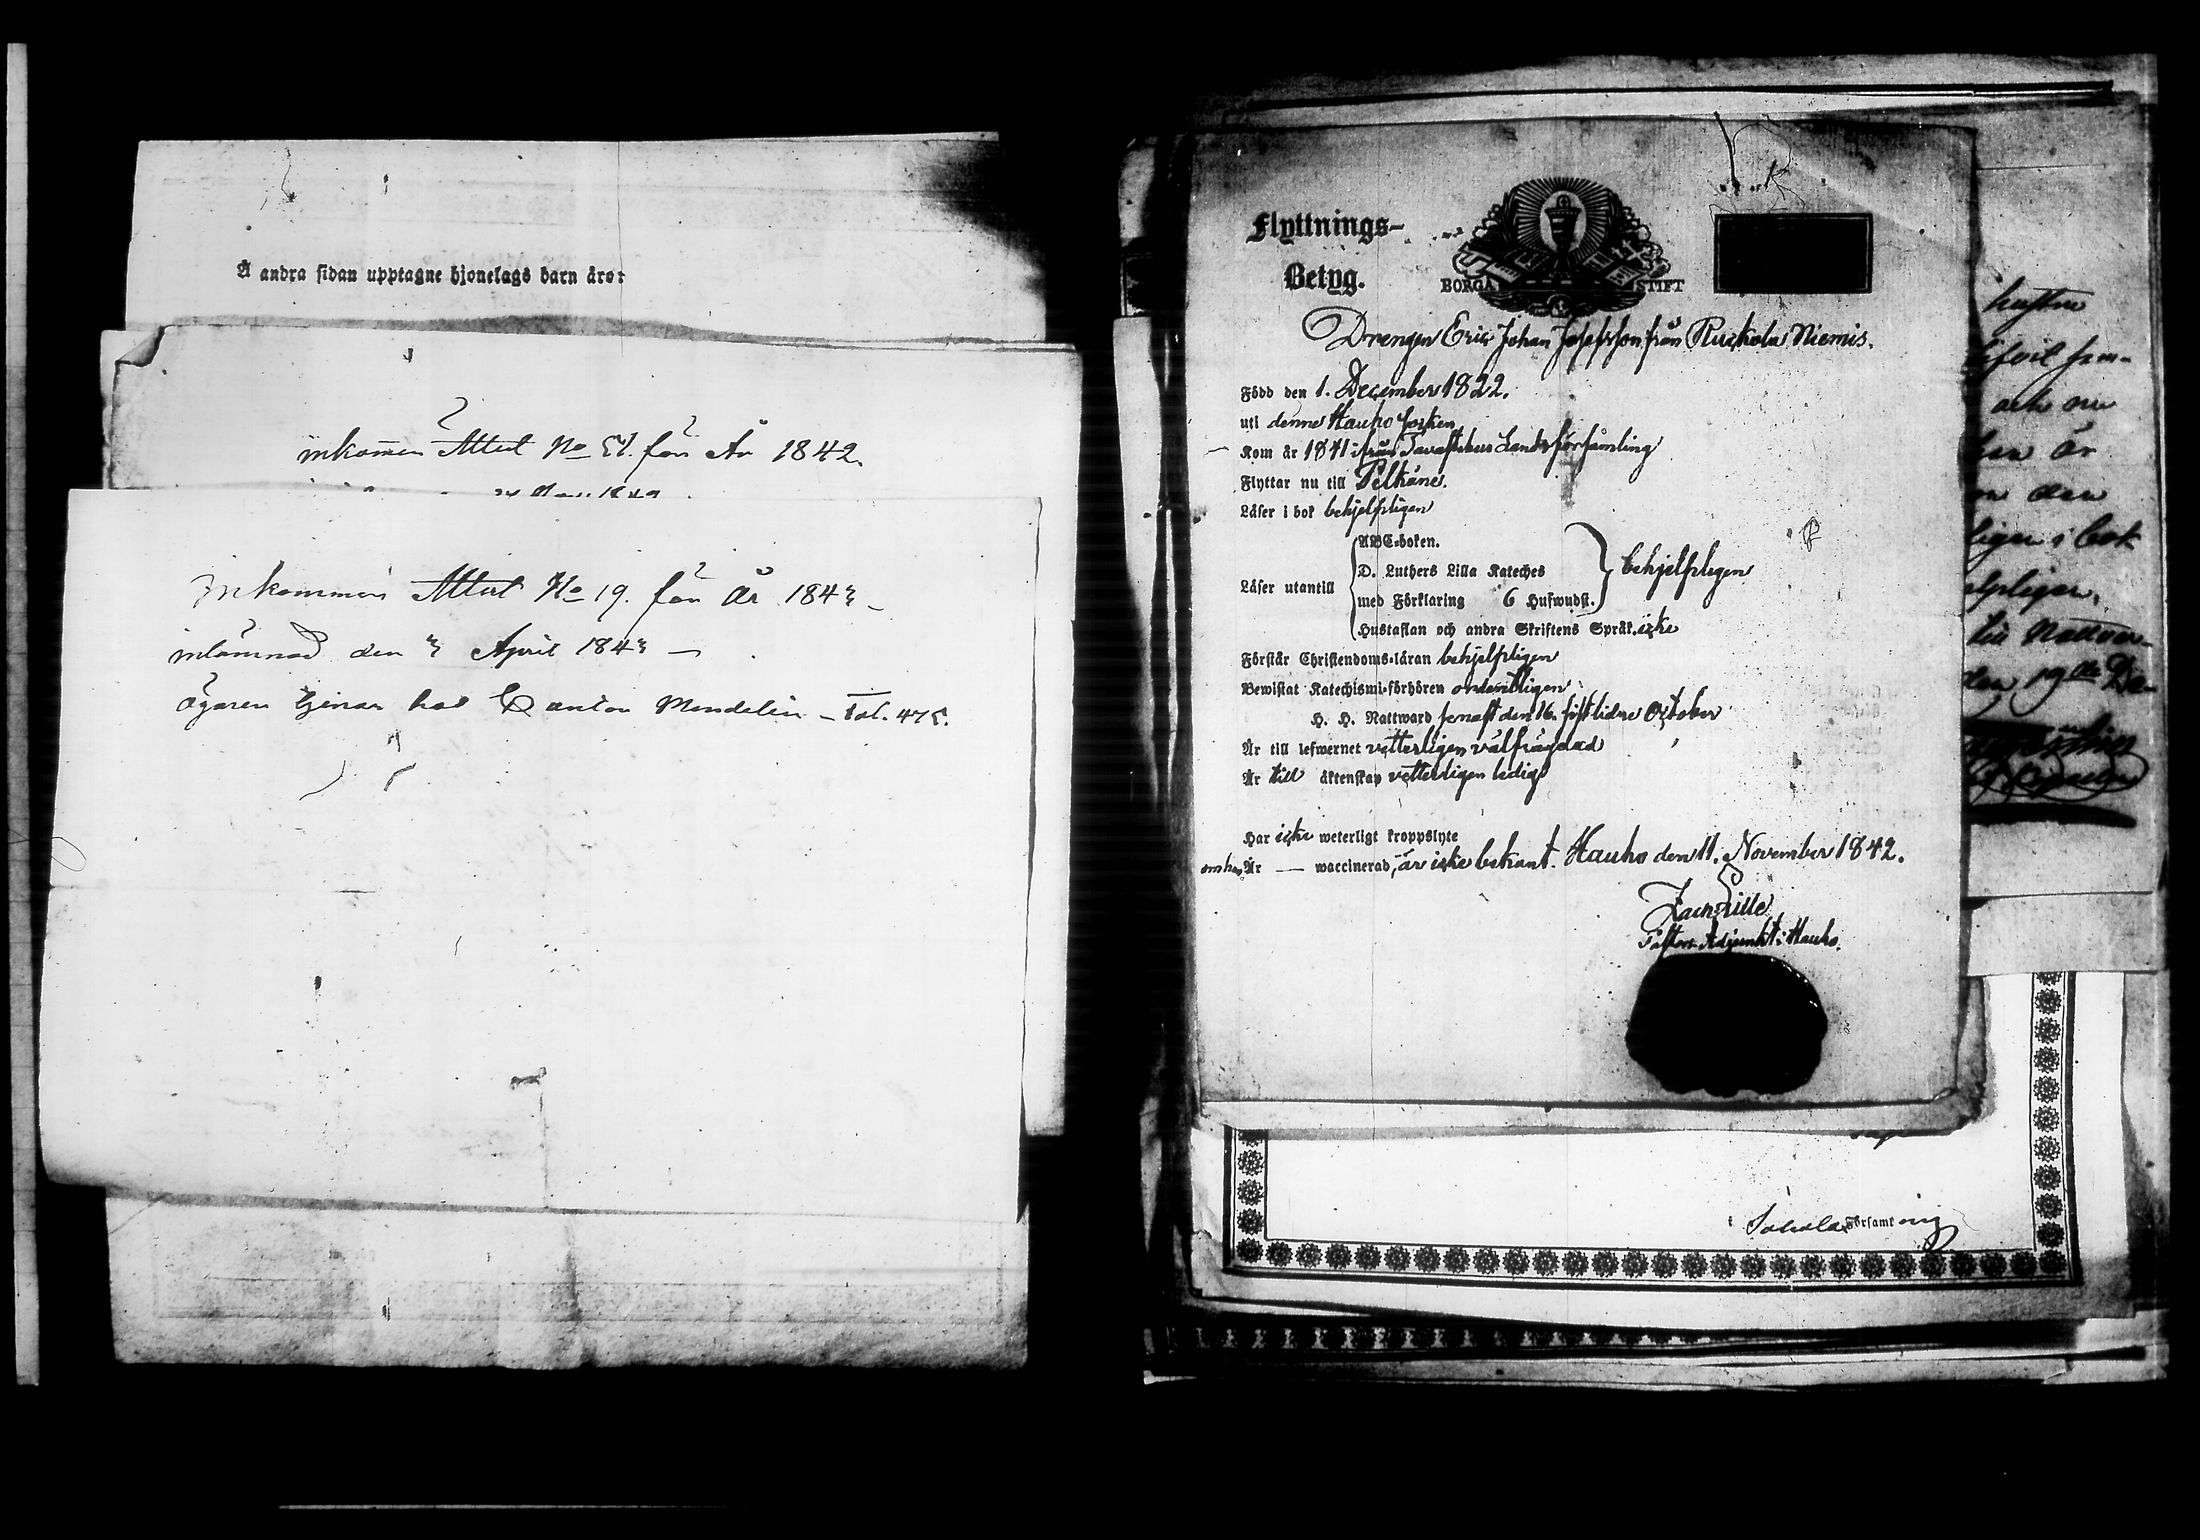 Å andra sidan upptagne hjonelags barn äro:
inkommen Attest No 51. för År 1842.
Inkommen Attest No 19. för År 1843
inlämnad den 3 April 1843
ägaren tjenar hos Cantor Mendelin – Fol. 475.
Flyttnings-
Betyg.
BORGÅ STIFT
Drengen Eric Johan Josephsson från Ruckola Niemis.
Född den 1. December 1822.
uti denne Hauho Socken
Kom år 1841 ifrån Tavastehus Landsförsamling
Flyttar nu till Pelkäne.
Läser i bok behjelpligen
ABC-boken.
D. Luthers Lilla Kateches
Läser utantill behjelpligen
med Förklaring 6 Hufwudst.
Hustaflan och andra Skriftens Språk. icke
Förstår Christendoms-läran behjelpligen
Bewistat Katechismi-förhören ordentligen
H. H. Nattward senast den 16. sistlidne October
Är till lefwernet vetterligen välfrägdad
Är till äktenskap vetterligen ledig
Har icke weterligt kroppslyte
om han Är — waccinerad, är icke bekant. Hauho den 11. November 1842.
Zach. Lille
Pastors Adjunkt i Hauho.
och nu
är
den
ligen i bok
elpligen,
till Nattvar-
den 19de De-
i Församling